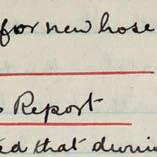 for new hose
Report
ed that durin